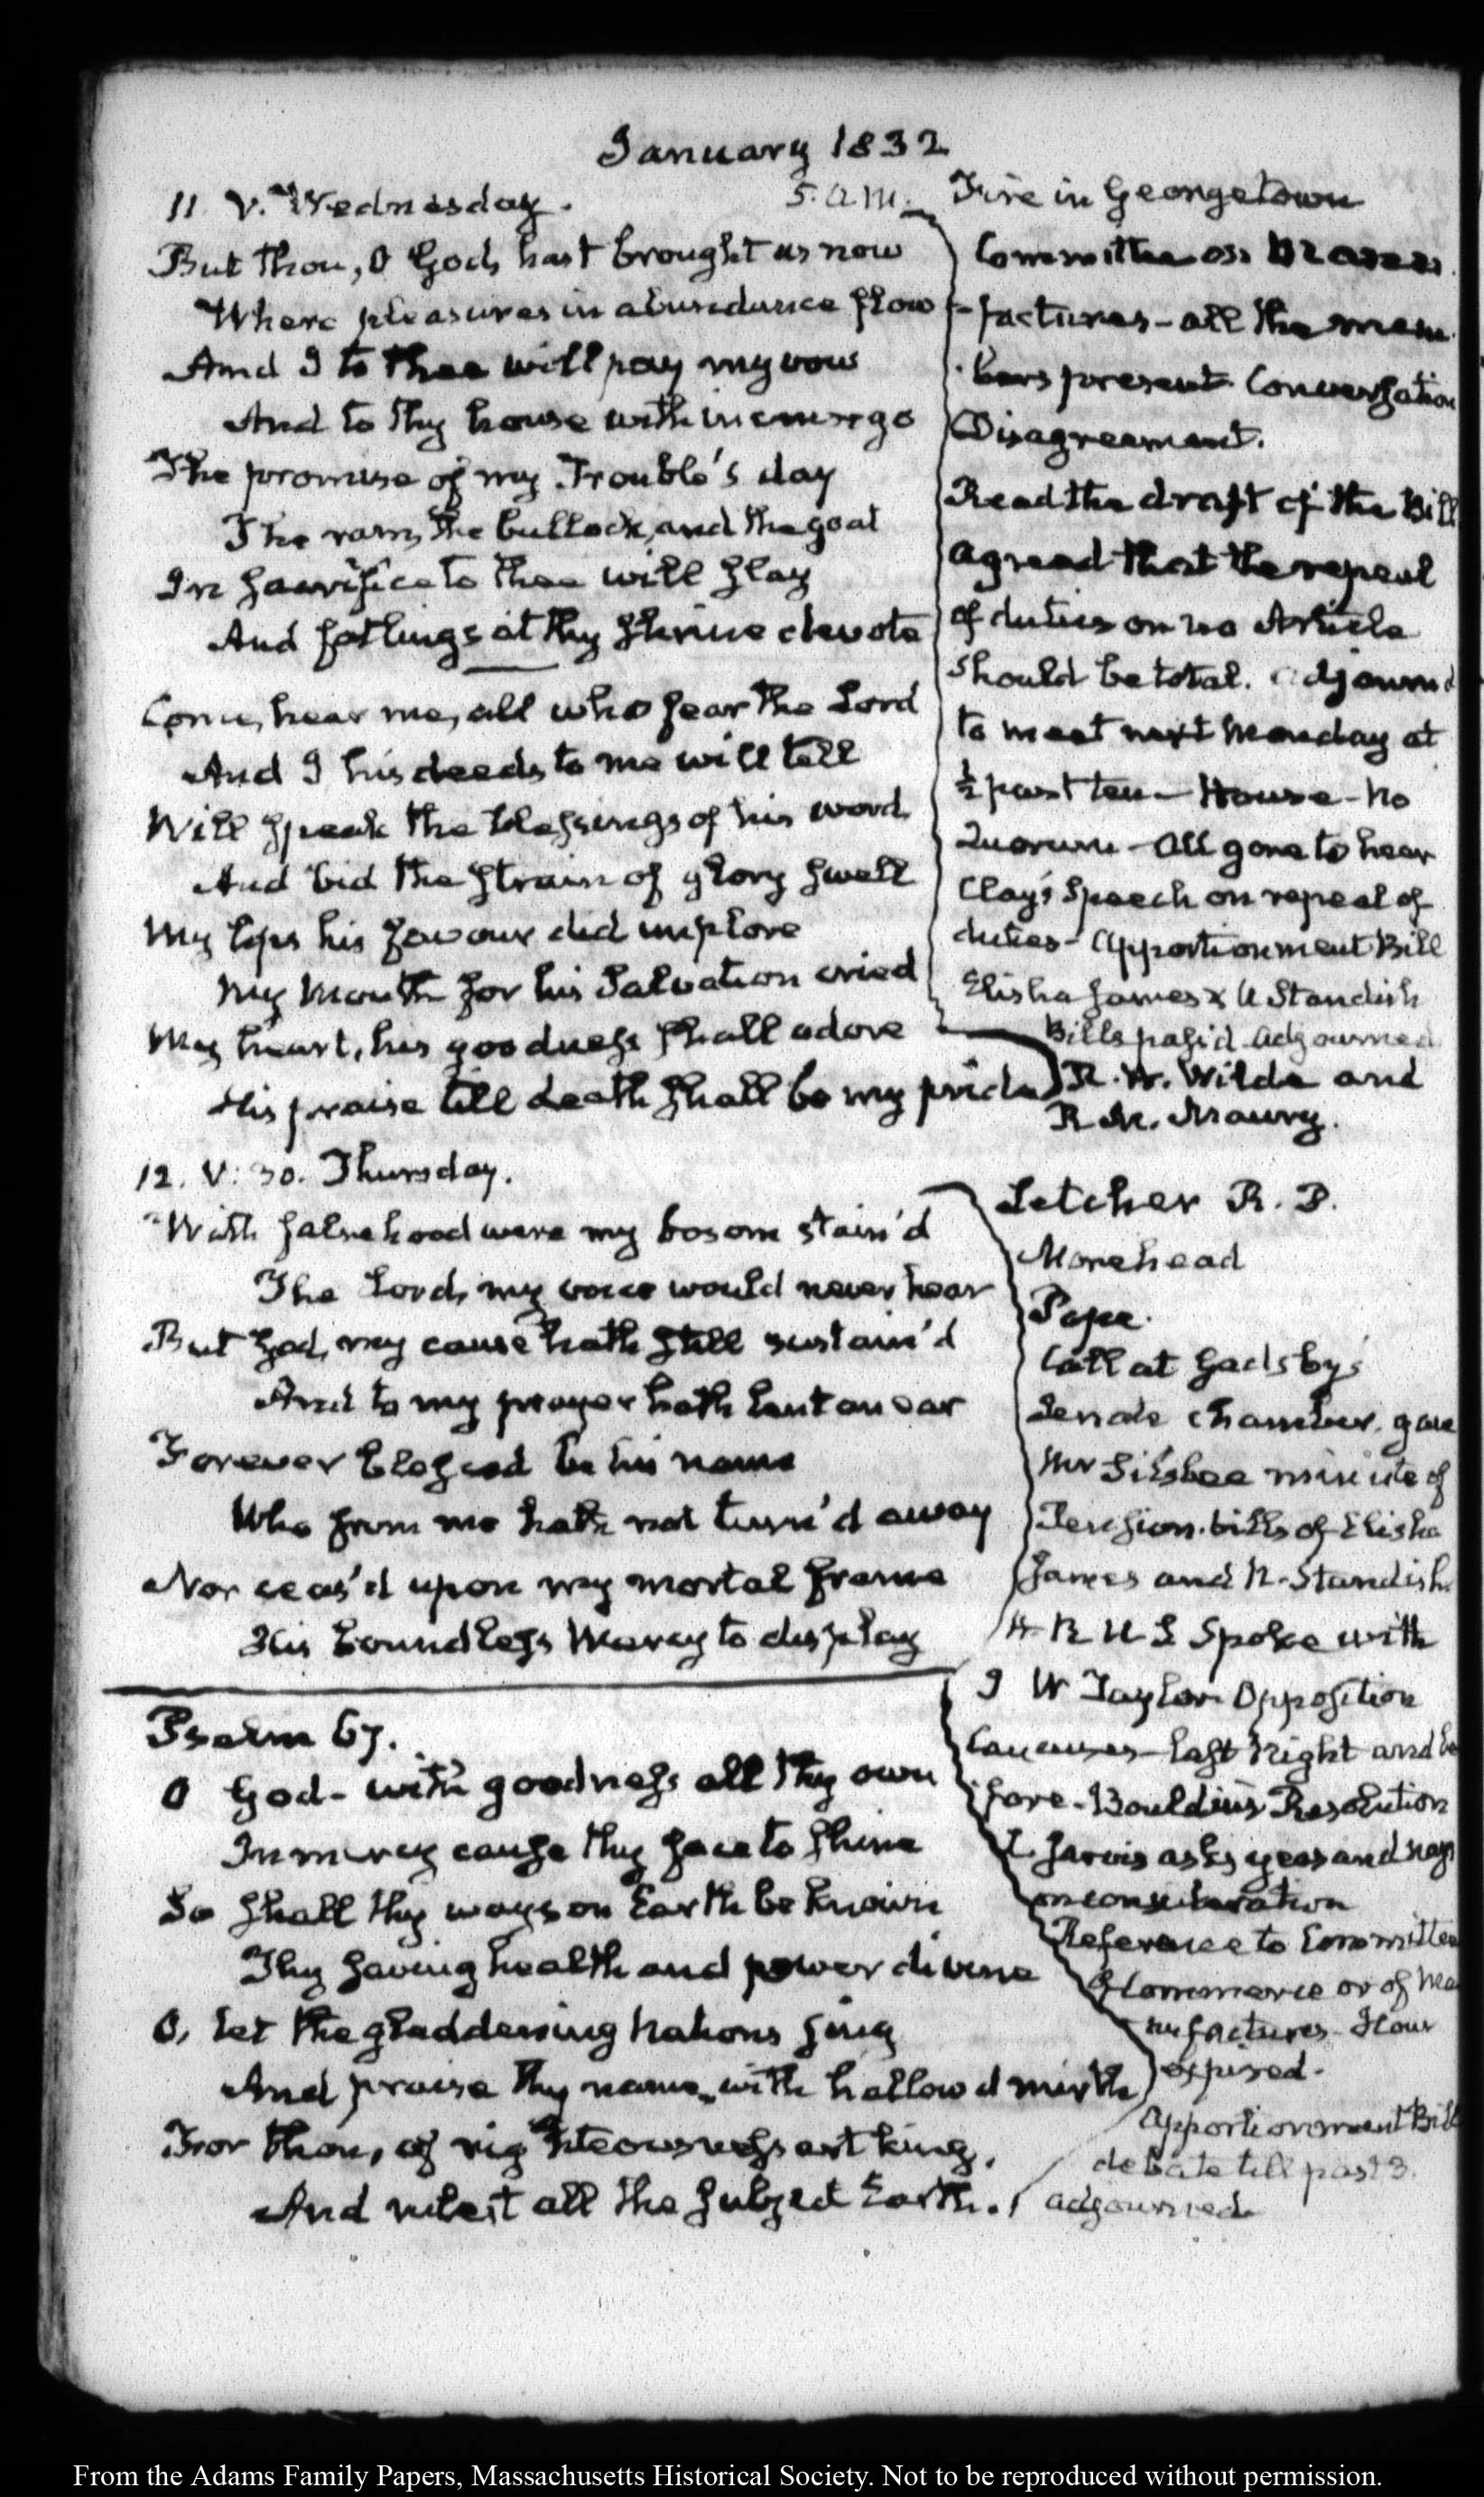 January 1832
11 V. Wednesday.
But thou, O God, hast brought us now
Where pleasures in abundance flow
And I to thee will pay my vow
And to thy house with incense go
The promise of my Trouble's day
The ram, the bullock, and the goat
In sacrifice to thee will slay
And fatlings at thy shrine devote
Come, hear me, all who fear the Lord
And I his deeds to me will tell
Will speak the blessings of his word
And bid the strain of glory swell
My lips his favour did implore
My mouth for his Salvation cried
My heart, his goodness shall adore
His praise till death shall be my pride
5. a.m. Fire in Georgetown
Committee on Manu
factures - all the mem
bers present Conversation
Disagreement.
Read the draft of the Bill
agreed that the repeal
of duties on no Article
should be total. adjourn'd
to meet next Monday at
½ past ten - House - No
Quorum - All gone to hear
Clay's Speech on repeal of
duties - Apportionment Bill
Elisha James & Standish
Bills pass'd adjourned
R. W. Wilde and
R. M. Maury.
12. V: 30. Thursday.
With falsehood were my bosom stain'd
The Lord, my voice would never hear
But God, my cause hath still sustain'd
And to my prayer hath lent an ear
Forever blessed be his name
Who from me hath not turn'd away
Nor ceas'd upon my mortal frame
His boundless Mercy to display
Psalm 67.
O God - with goodness all thy own
In mercy cause thy face to shine
So shall thy ways on Earth be known
Thy saving health and power divine
O, let the gladdening Nations sing
And praise thy name, with hallow'd mirth
For thou, of righteousness art king,
And rulest all the subject Earth.
Letcher R. P.
Morehead
Pope.
Call at Gadsby's
Senate chamber. gave
Mr Silsbee minute of
Pension bills of Elisha
James and N. Standish.
H. R. U. S Spoke with
J W Taylor. Opposition
Caucuses - last Night and be
fore - Bouldin's Resolution
L. Jarvis asks yeas and nays
on consideration
Reference to Committee
of Commerce or of Ma
nufactures - Hour
expired.
Apportionment Bill
debate till past 3.
adjourned
From the Adams Family Papers, Massachusetts Historical Society. Not to be reproduced without permission.